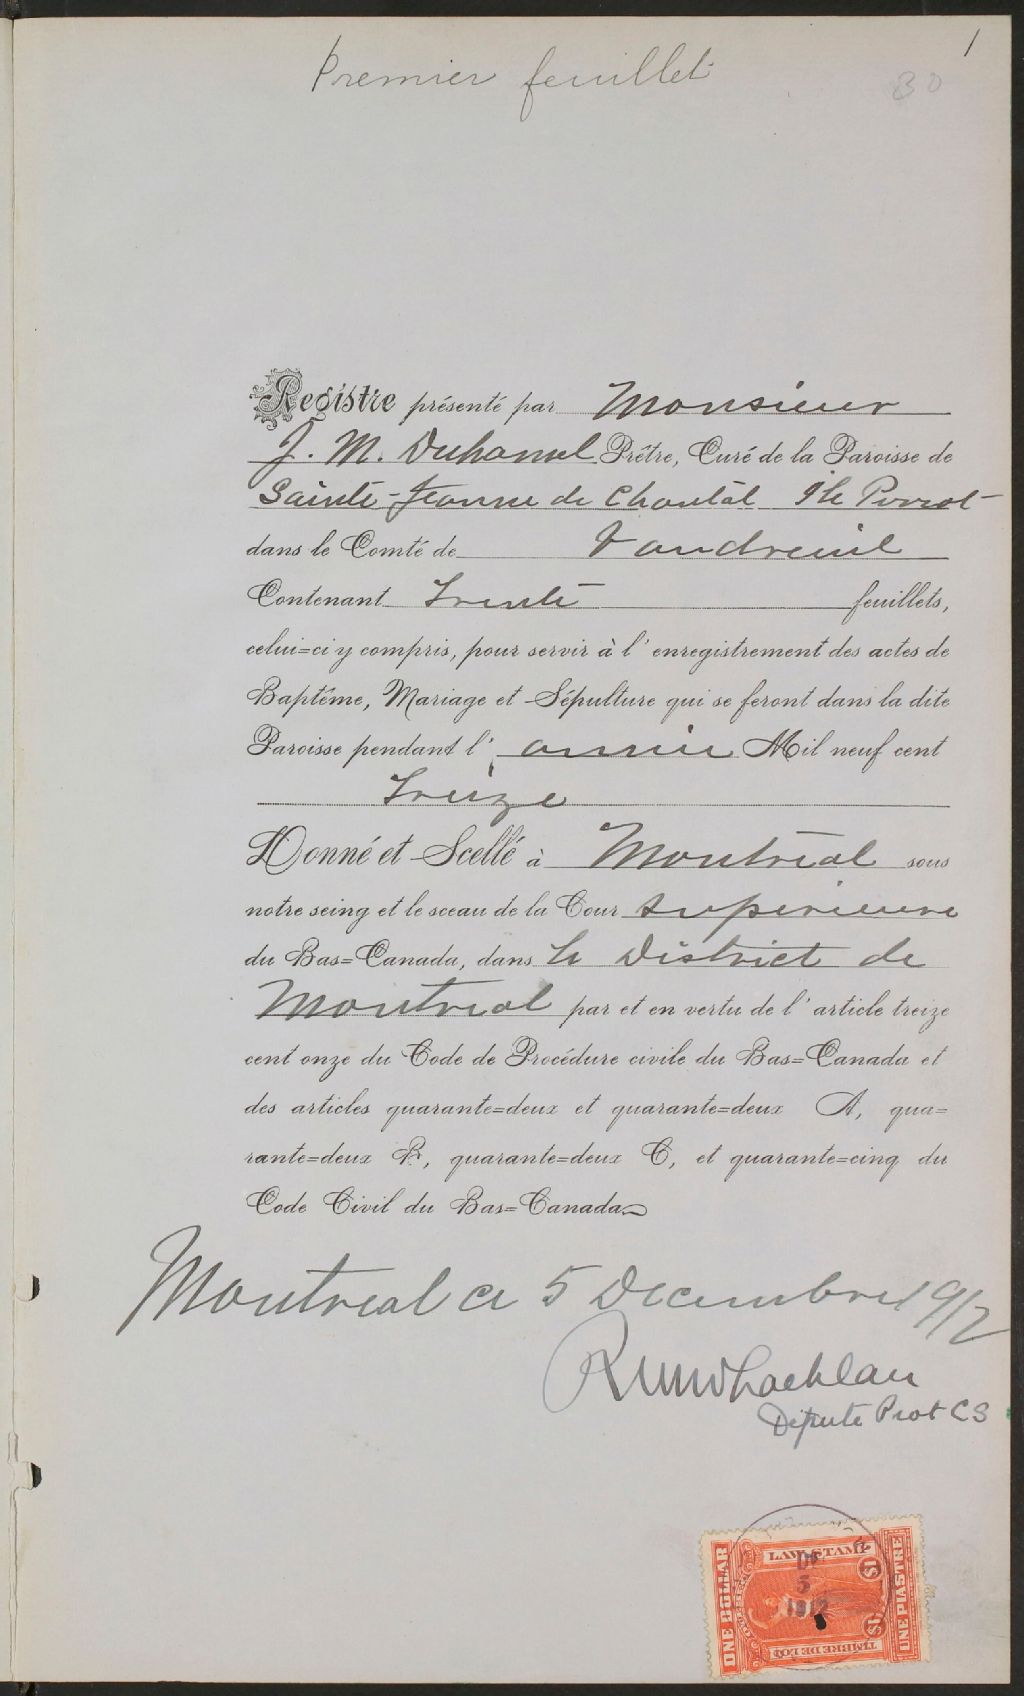 1
Premier feuillet
30
Registre présenté par Monsieur
J. M. Duhamel Prêtre, Curé de la Paroisse de
Sainte-Jeanne de Chantal Ile Perrot
dans le Comté de Vaudreuil
Contenant Trente feuillets,
celui=ci y compris, pour servir à l'enregistrement des actes de
Baptême, Mariage et Sépulture qui se feront dans la dite
Paroisse pendant l'année Mil neuf cent
Treize
Donné et Scellé à Montréal sous
notre seing et le sceau de la Cour Supérieure
du Bas=Canada, dans le District de
Montreal par et en vertu de l'article treize
cent onze du Code de Procédure civile du Bas=Canada et
des articles quarante=deux et quarante=deux A, qua=
rante=deux B, quarante=deux C, et quarante=cinq du
Code Civil du Bas=Canada
Montreal ce 5 Decembre 1912
Député Prot C S
LAW STAMP
ONE DOLLAR
$1
DE
5
1912
$1
UNE PIASTRE
TIMBRE DE LOI